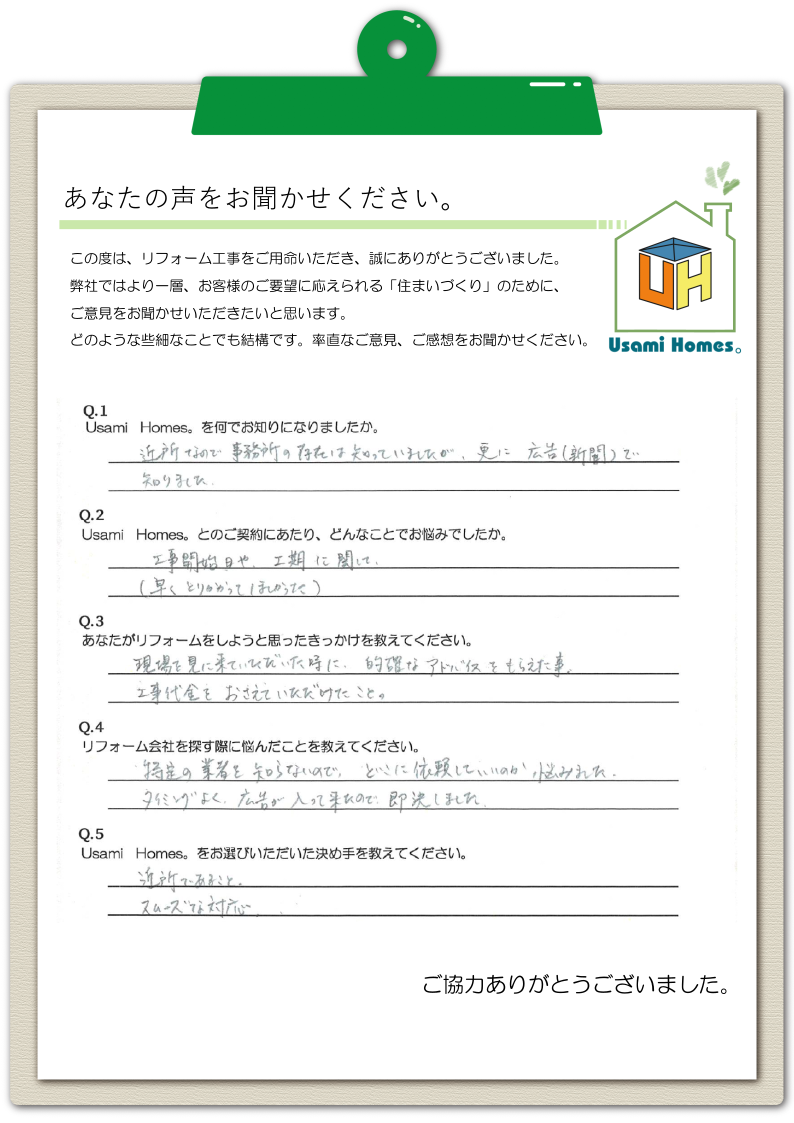 あなたの声をお聞かせください。
この度は、リフォーム工事をご用命いただき、誠にありがとうございました。
弊社ではより一層、お客様のご要望に応えられる「住まいづくり」のために、
ご意見をお聞かせいただきたいと思います。
どのような些細なことでも結構です。率直なご意見、ご感想をお聞かせください。
UH
Usami Homes。
Q.1
Usami Homes。を何でお知りになりましたか。
近所なので事務所の存在は知っていましたが、更に広告(新聞)で
知りました.
Q.2
Usami Homes。とのご契約にあたり、どんなことでお悩みでしたか。
工事開始日や、工期に関して、
(早くとりかかってほしかった)
Q.3
あなたがリフォームをしようと思ったきっかけを教えてください。
現場を見に来ていただいた時に、的確なアドバイスをもらえた事、
工事代金をおさえていただけたこと。
Q.4
リフォーム会社を探す際に悩んだことを教えてください。
特定の業者を知らないので、どこに依頼していいのか悩みました.
タイミングよく、広告が入って来たので即決しました.
Q.5
Usami Homes。をお選びいただいた決め手を教えてください。
近所であること。
スムーズな対応、
ご協力ありがとうございました。